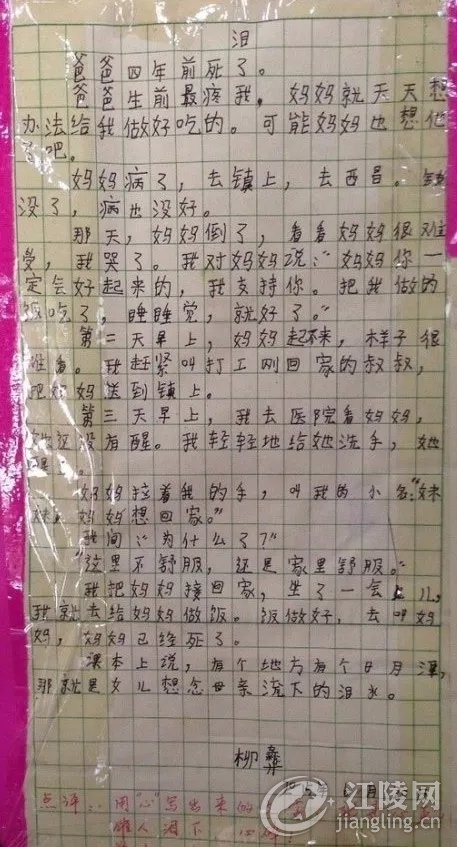 泪
爸爸四年前死了。
爸爸生前最疼我，妈妈就天天想
办法给我做好吃的。可能妈妈也想他
了吧。
妈妈病了，去镇上，去西昌。钱
没了，病也没好。
那天，妈妈倒了，看看妈妈很难
受，我哭了。我对妈妈说：“妈妈你一
定会好起来的，我支持你。把我做的
饭吃了，睡睡觉，就好了。”
第二天早上，妈妈起不来，样子很
难看。我赶紧叫打工刚回家的叔叔，
把妈妈送到镇上。
第三天早上，我去医院看妈妈，
她还没有醒。我轻轻地给她洗手，她
醒了。
妈妈拉着我的手，叫我的小名：“妹
妹，妈妈想回家。”
我问：“为什么了？”
“这里不舒服，还是家里舒服。”
我把妈妈接回家，坐了一会儿，
我就去给妈妈做饭。饭做好，去叫妈
妈，妈妈已经死了。
课本上说，有个地方有个日月潭，
那就是女儿想念母亲流下的泪水。
柳彝
点评：用“心”写出来的
催人泪下
江陵网
jiangling.cn